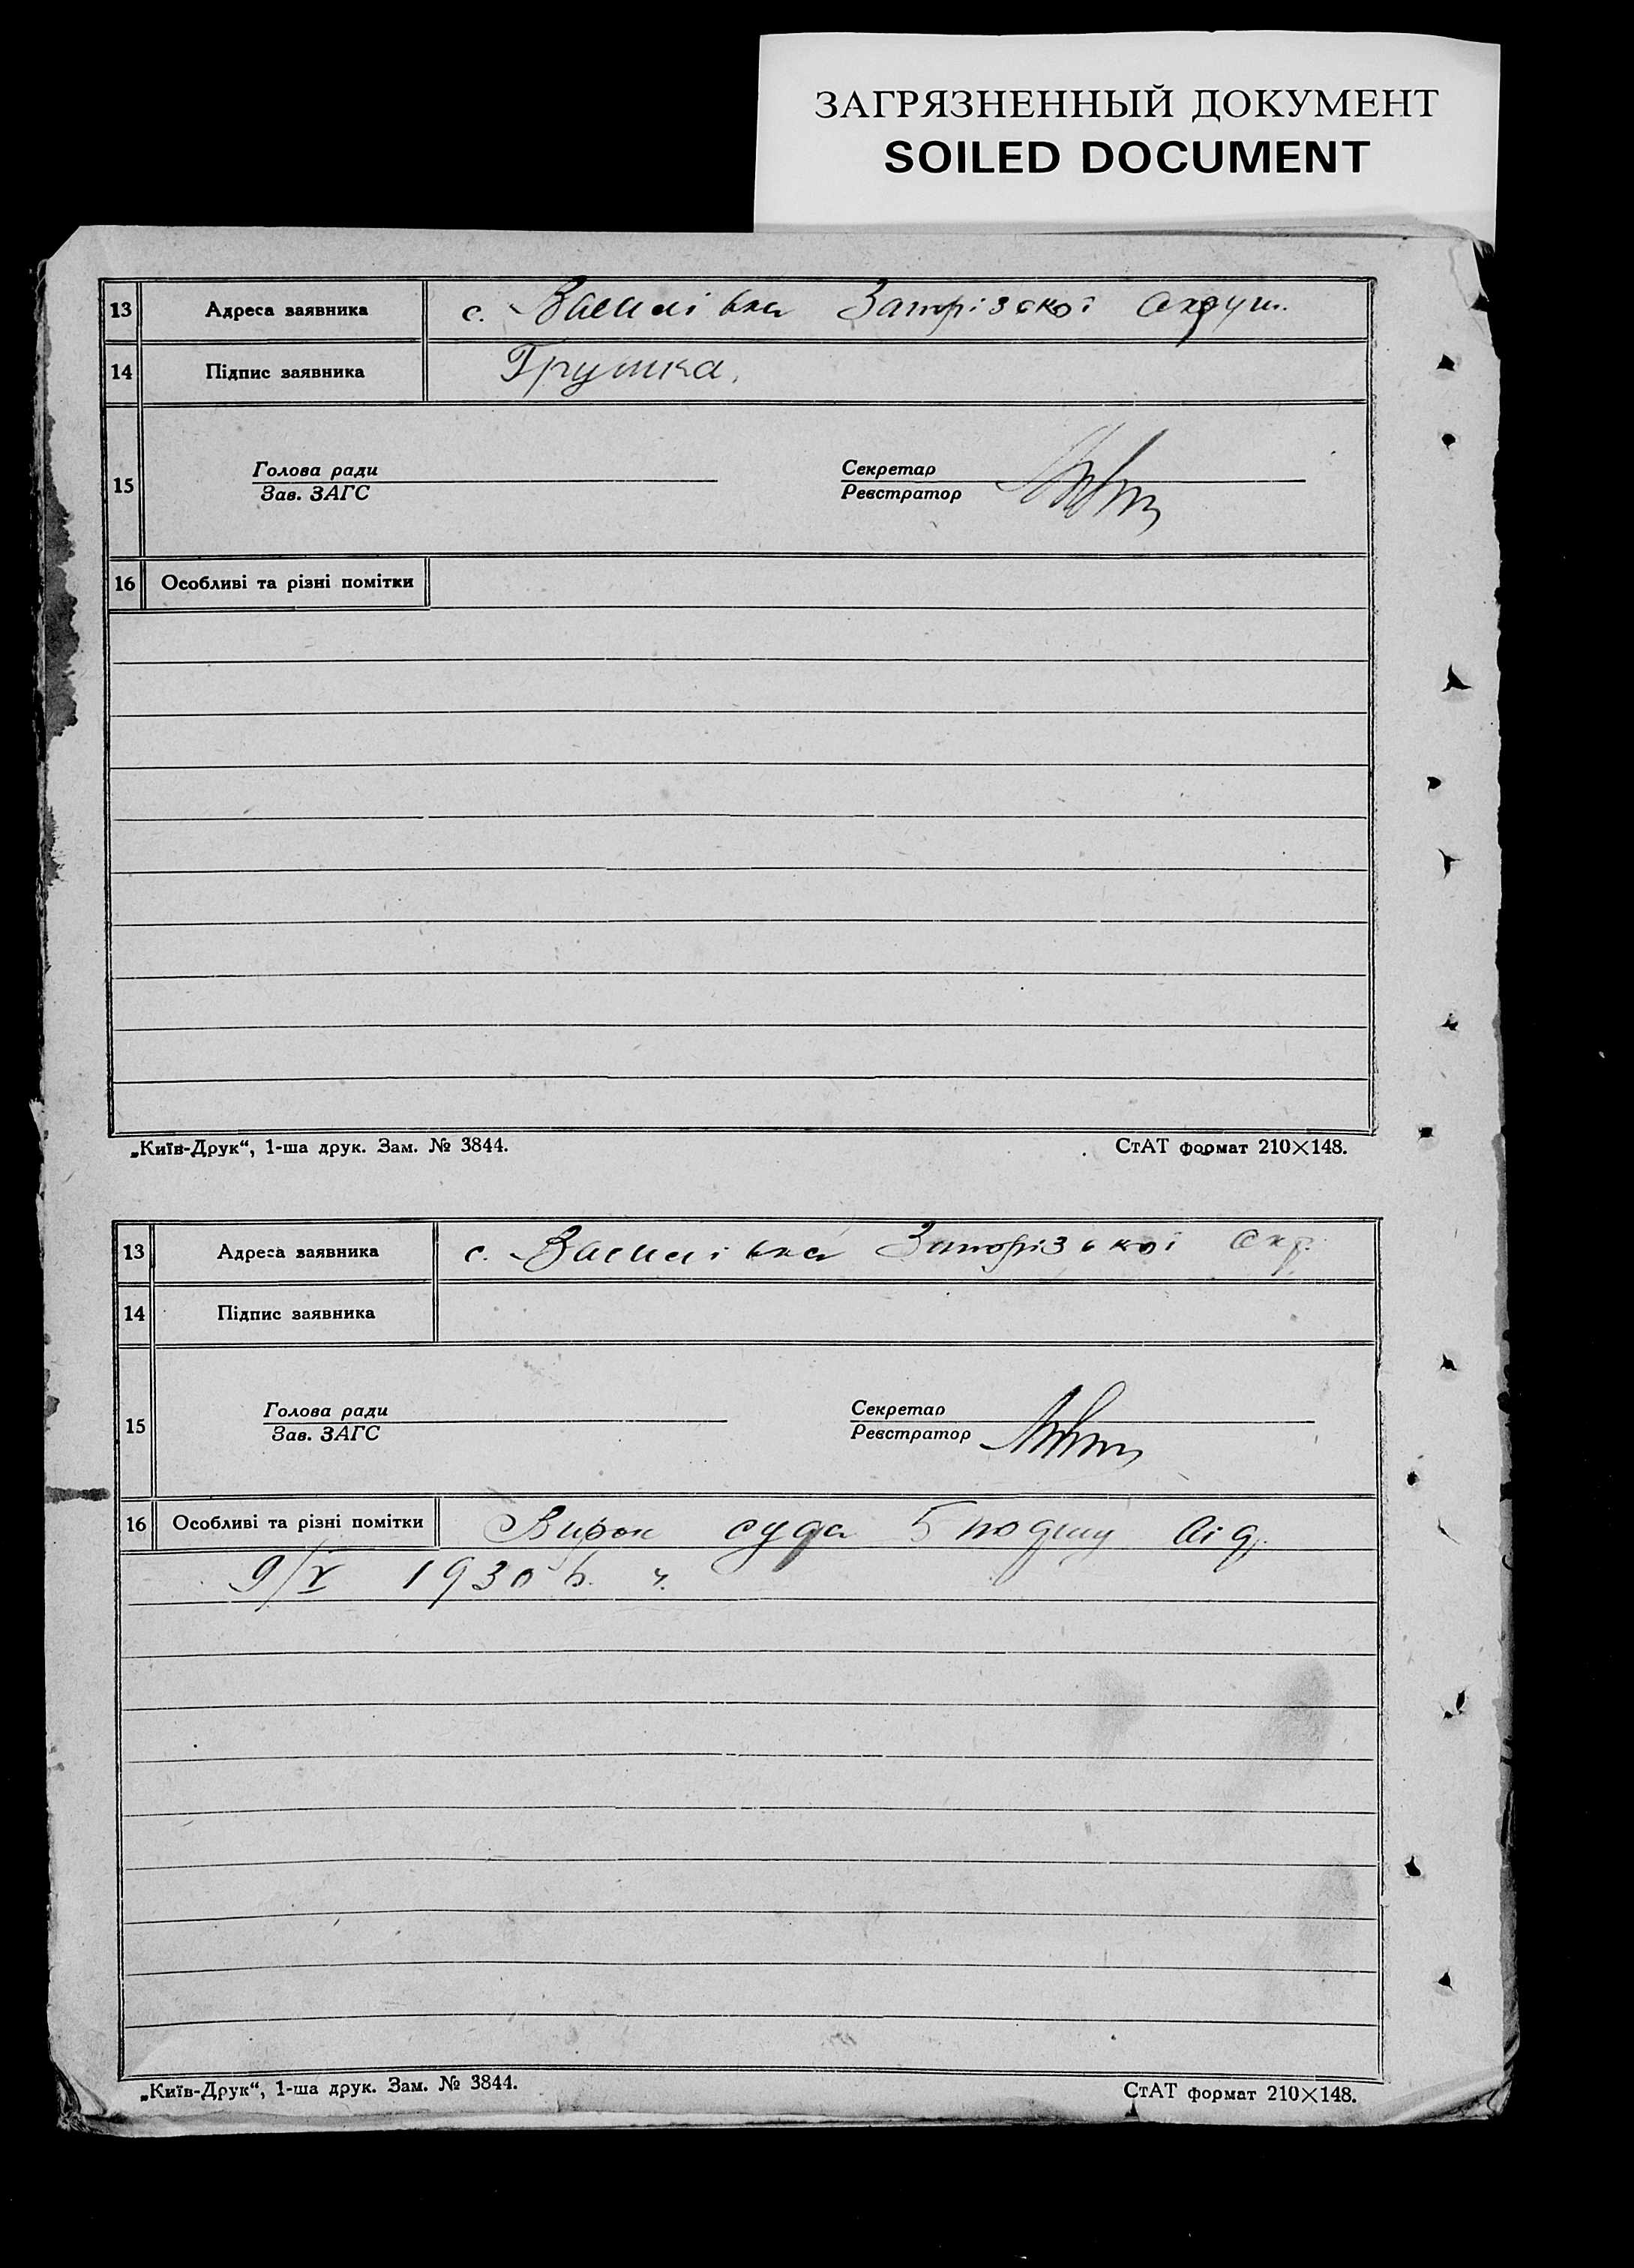 ЗАГРЯЗНЕННЫЙ ДОКУМЕНТ
SOILED DOCUMENT
13 Адреса заявника с. Василівка Запорізької Округи.
14 Підпис заявника Грушка.
15 Голова ради Секретар
Зав. ЗАГС Реєстратор
16 Особливі та різні помітки
„Київ-Друк“, 1-ша друк. Зам. № 3844. СтАТ формат 210×148.
13 Адреса заявника с. Василівка Запорізької Окр.
14 Підпис заявника
15 Голова ради Секретар
Зав. ЗАГС Реєстратор
16 Особливі та різні помітки Вирок суда 5 від
9/V 1930 р.
„Київ-Друк“, 1-ша друк. Зам. № 3844. СтАТ формат 210×148.